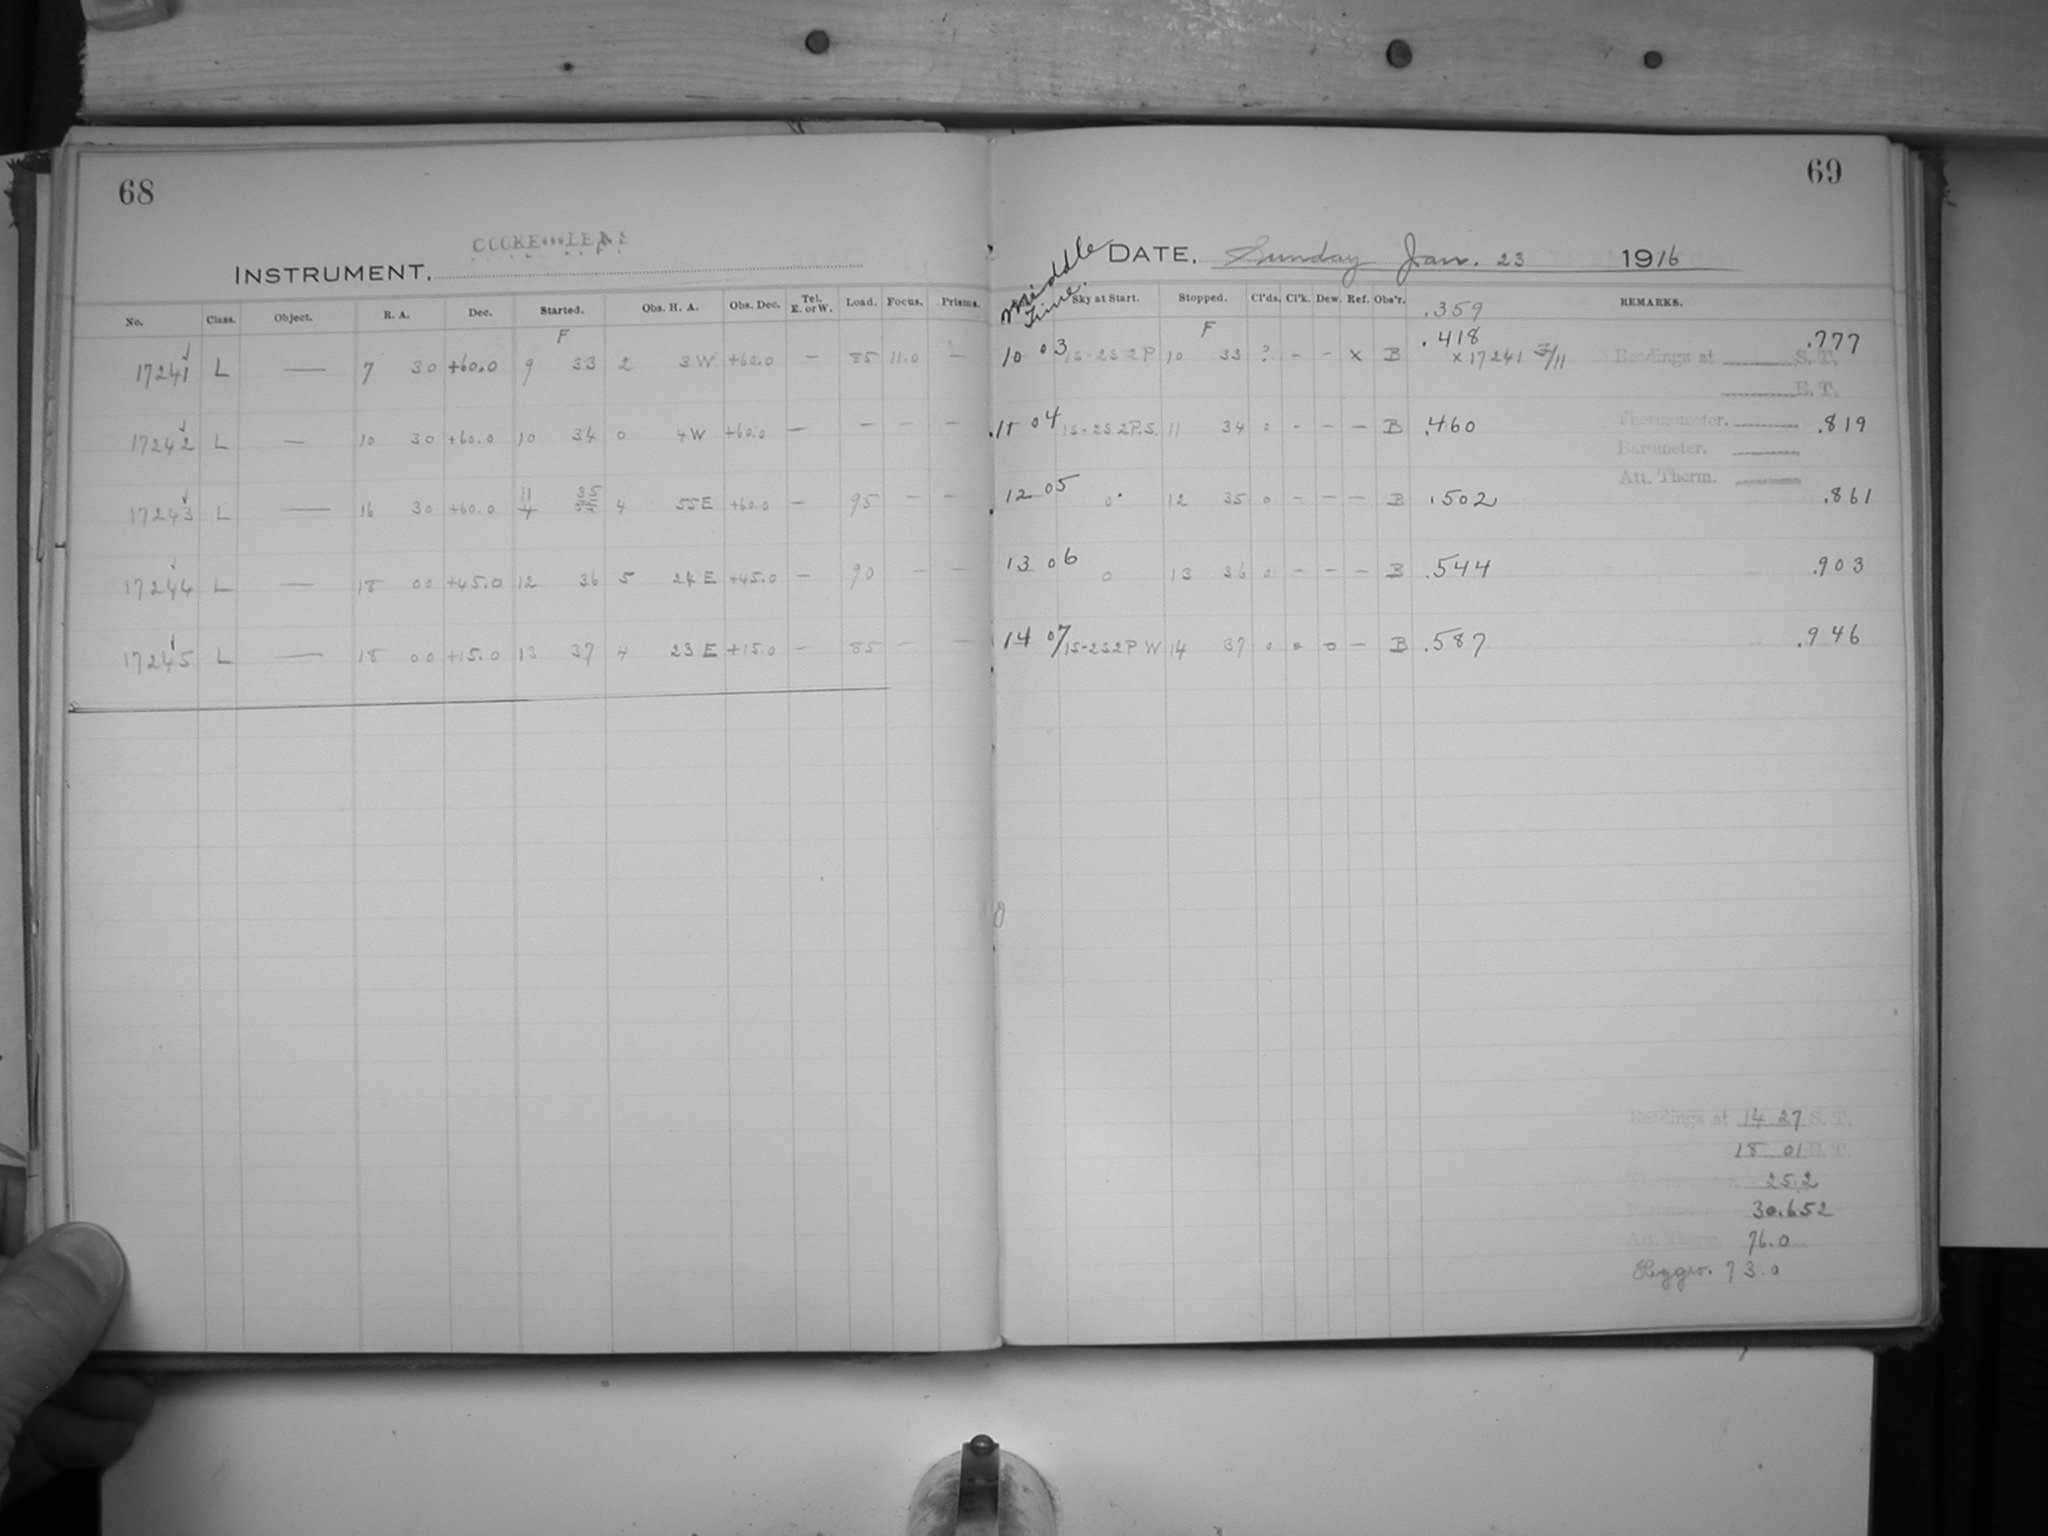 68
COOKE LENS
INSTRUMENT.
No. Class. Object. R. A. Dec. Started. Obs. H. A. Obs. Dec. Tel. E. or W. Load. Focus. Prisms.
F
17241 L — 7 30 +60.0 9 33 2 3 W +60.0 — 85 11.0 —
17242 L — 10 30 +60.0 10 34 0 4 W +60.0 — — — —
17243 L — 16 30 +60.0 11 35 4 55 E +60.0 — 95 — —
17244 L — 18 00 +45.0 12 36 5 24 E +45.0 — 90 — —
17245 L — 18 00 +15.0 13 37 4 23 E +15.0 — 85 — —
69
DATE. Sunday Jan. 23 1916
Middle Time. Sky at Start. Stopped. Cl'ds. Cl'k. Dew. Ref. Obs'r. REMARKS.
.359
F
10 03 1S-2S 2P 10 33 ? - - x B .418 .777
x 17241 Readings at S. T.
E. T.
11 04 1S-2S 2P.S. 11 34 0 - - - B .460 Thermometer. .819
Barometer.
Att. Therm.
12 05 0 12 35 0 - - - B .502 .861
13 06 0 13 36 0 - - - B .544 .903
14 07 1S-2S 2P W 14 37 0 0 — B .587 .946
Readings at 14 27 S. T.
18 01 E. T.
25.2
30.652
Att. Therm. 76.0
Hygro. 73.0